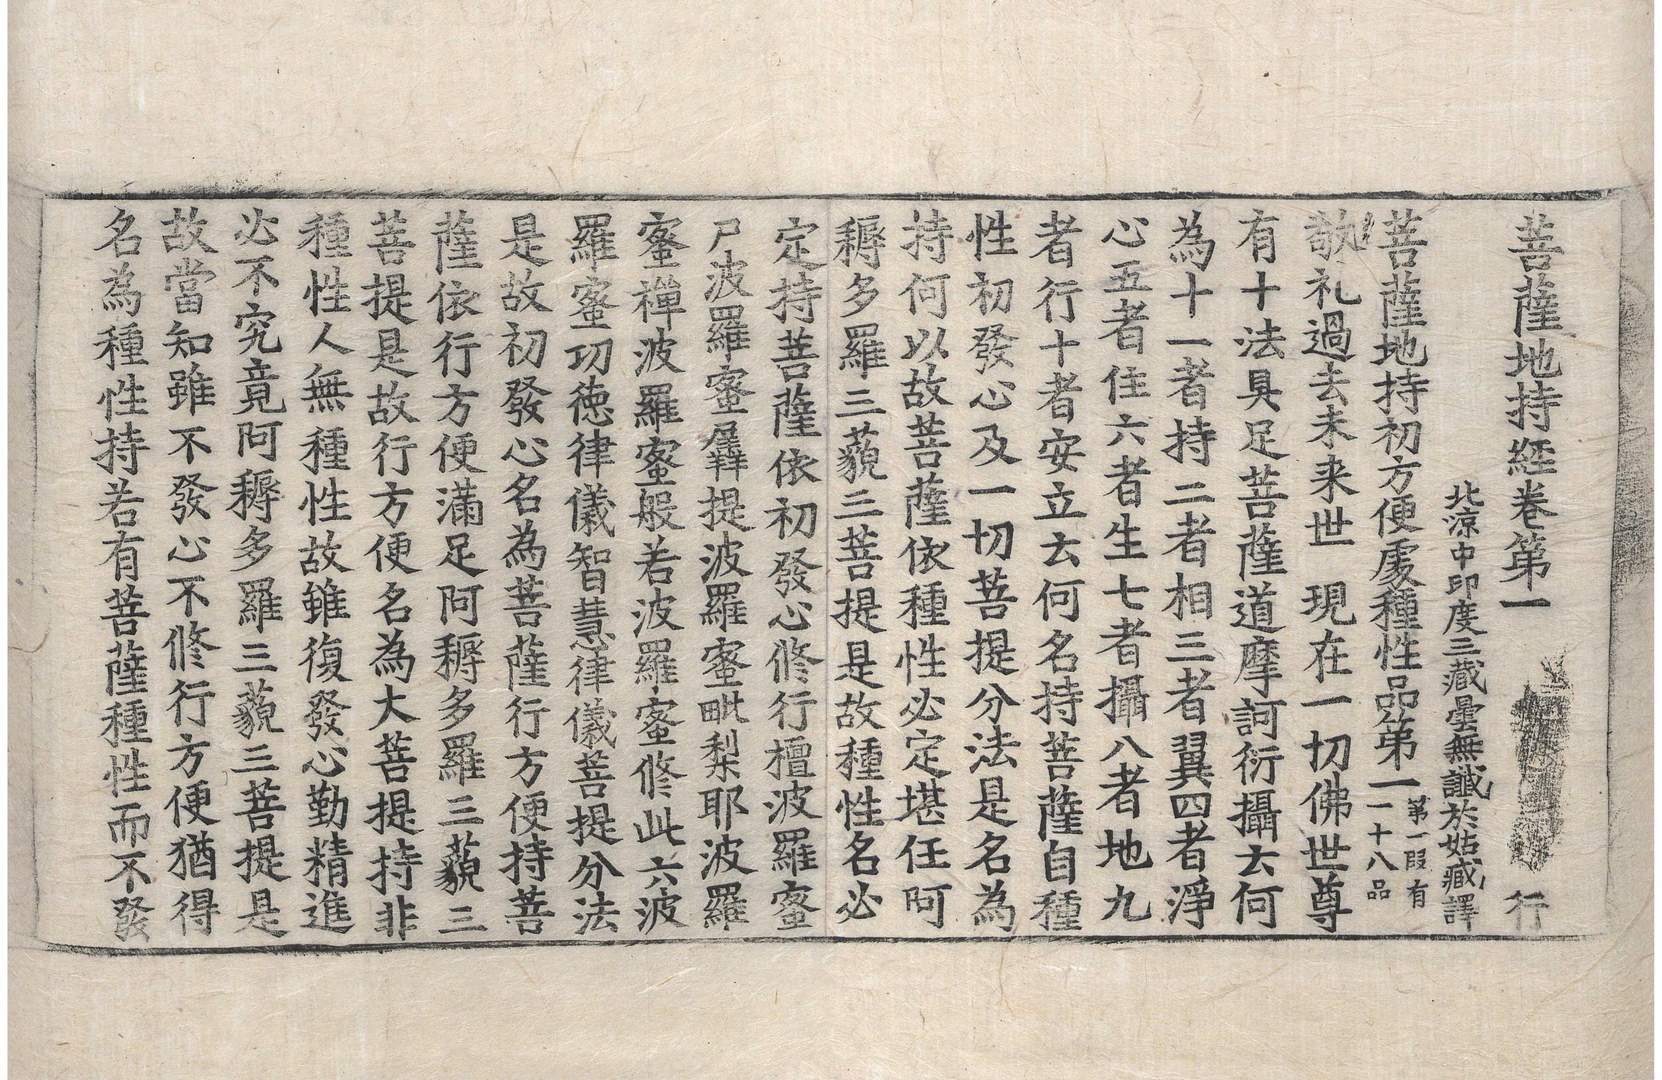 菩薩地持經卷第一 行
北涼中印度三藏曇無讖於姑臧譯
菩薩地持初方便處種性品第一 第一段有一十八品
敬礼過去未来世 現在一切佛世尊
有十法具足菩薩道摩訶衍攝云何
為十一者持二者相三者翼四者淨
心五者住六者生七者攝八者地九
者行十者安立云何名持菩薩自種
性初發心及一切菩提分法是名為
持何以故菩薩依種性必定堪任阿
耨多羅三藐三菩提是故種性名必
定持菩薩依初發心修行檀波羅蜜
尸波羅蜜羼提波羅蜜毗梨耶波羅
蜜禪波羅蜜般若波羅蜜修此六波
羅蜜功德律儀智慧律儀菩提分法
是故初發心名為菩薩行方便持菩
薩依行方便滿足阿耨多羅三藐三
菩提是故行方便名為大菩提持非
種性人無種性故雖復發心勤精進
必不究竟阿耨多羅三藐三菩提是
故當知雖不發心不修行方便猶得
名為種性持若有菩薩種性而不發